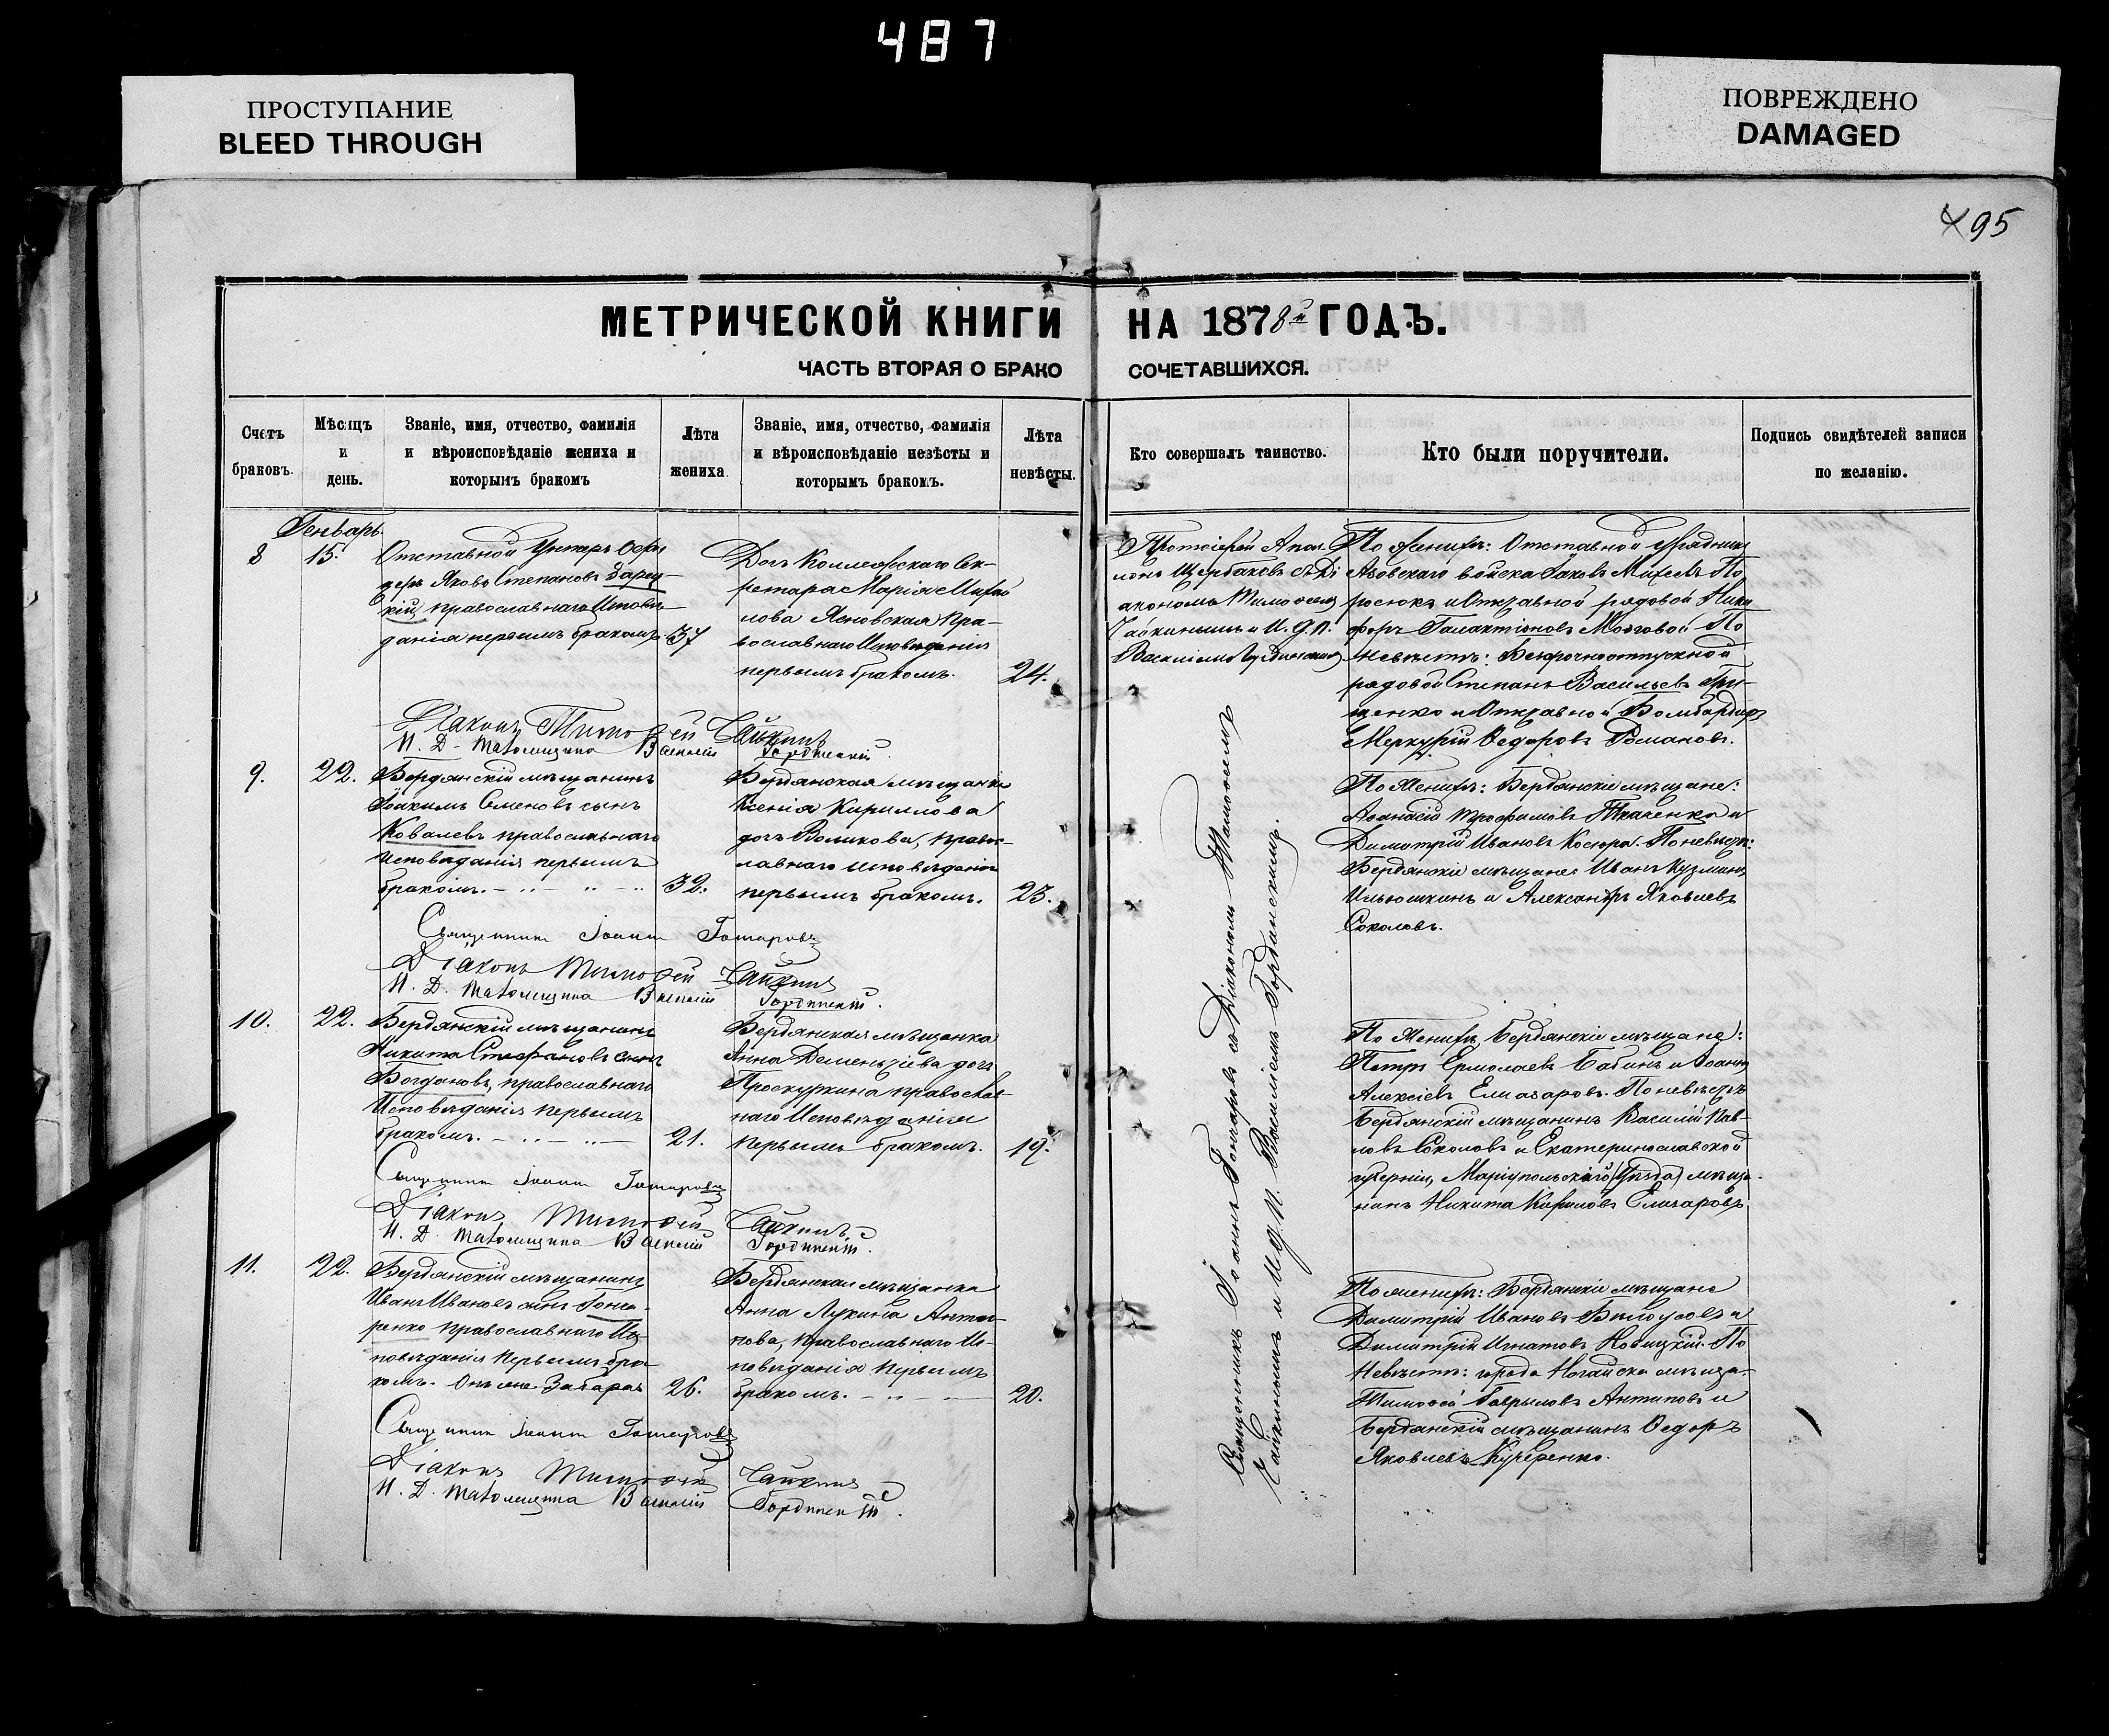 487
ПРОСТУПАНИЕ
BLEED THROUGH
ПОВРЕЖДЕНО
DAMAGED
495
МЕТРИЧЕСКОЙ КНИГИ НА 1878й ГОДЪ.
ЧАСТЬ ВТОРАЯ О БРАКО СОЧЕТАВШИХСЯ.
Счетъ
браковъ.
Мѣсяцъ
и
день.
Званіе, имя, отчество, фамилія
и вѣроисповѣданіе жениха и
которымъ бракомъ
Лѣта
жениха.
Званіе, имя, отчество, фамилія
и вѣроисповѣданіе невѣсты и
которымъ бракомъ.
Лѣта
невѣсты.
Кто совершалъ таинство.
Кто были поручители.
Подпись свидѣтелей записи
по желанію.
Генварь
8
15.
Отставной Унтеръ Офи
церъ Яковъ Степановъ Зарец-
кій, православнаго Исповѣ-
данія первымъ бракомъ
37
Дочь Коллежскаго Се-
кретара Марія Михай
лова Яновская Пра-
вославнаго Исповѣданія
первымъ бракомъ.
24.
Протоіерей Апол-
лонъ Щербаковъ съ Ді
акономъ Тимофеем
Чайкинымъ и И. Д. П.
Василіемъ Гординскимъ
По Женихѣ: Отставной Урядникъ
Азовскаго войска Яковъ
и Отставной рядовой Ники
форъ Галактіоновъ Мозговой По
Невѣстѣ: Безсрочноотпускной
рядовой Степанъ Васильевъ Гри-
щенко и Отставной Бомбардиръ
Меркурій Федоровъ Романовъ.
Діаконъ Тимофей Чайкинъ
И. Д. Псаломщика Василій Гординскій.
9.
22.
Бердянскій мѣщанинъ
Іоакимъ Семеновъ сынъ
Ковалевъ православнаго
Исповѣданія первымъ
бракомъ.
32.
Бердянская мѣщанка
Ксенія Кириллова
дочь Воликова, правос-
лавнаго исповѣданія
первымъ бракомъ.
23.
По Женихѣ: Бердянскіе мѣщане:
Афанасій Трофимовъ Ткаченко и
Димитрій Ивановъ Косюра. По невѣстѣ:
Бердянскіе мѣщане: Иванъ Кузминъ
Ильюшкинъ и Александръ Яковлевъ
Соколовъ.
Священникъ Іоаннъ Гонгаровъ
Діаконъ Тимофей Чайкинъ
И. Д. Псаломщика Василій Гординскій.
10.
22.
Бердянскій мѣщанинъ
Никита Стефановъ сынъ
Богдановъ, православнаго
Исповѣданія первымъ
бракомъ.
21.
Бердянская мѣщанка
Анна Дементіева дочь
Проскуркина православ-
наго Исповѣданія
первымъ бракомъ.
19.
По Женихѣ, Бердянскіе мѣщане:
Петръ Ермолаевъ Бабинъ и Іоаннъ
Алексіевъ Елиазаровъ. По невѣстѣ
Бердянскій мѣщанинъ Василій Пав-
ловъ Соколовъ и Екатеринославской
губерніи, Маріупольскаго уѣзда мѣща-
нинъ Никита Кириловъ Елизаровъ
Священникъ Іоаннъ Гонгаровъ
Діаконъ Тимофей Чайкинъ.
И. Д. Псаломщика Василій Гординскій.
11.
22.
Бердянскій мѣщанинъ
Иванъ Ивановъ сынъ Гонча-
ренко православнаго Ис-
повѣданія первымъ бра-
комъ.
26.
Бердянская мѣщанка
Анна Лукина Анти-
пова, православнаго Ис-
повѣданія первымъ
бракомъ.
20.
По женихѣ: Бердянскіе мѣщане
Димитрій Ивановъ Билоусовъ и
Димитрій Игнатовъ Новицкій. По
Невѣстѣ: города Ногайска мѣща.
Тимофей Гавриловъ Антиповъ и
Бердянскій мѣщанинъ Федоръ
Яковлевъ Кучеренко.
Священникъ Іоаннъ Гонгаровъ
Діаконъ Тимофей Чайкинъ
И. Д. Псаломщика Василій Гординскій.
Священникъ Іоаннъ Гонгаровъ съ Діакономъ Тимофеемъ
Чайкинымъ и И. Д. П. Василіемъ Гординскимъ.